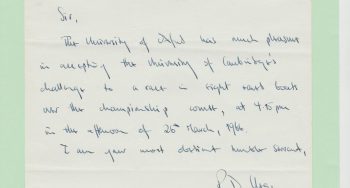 Sir,
The University of Oxford has much pleasure
in accepting the University of Cambridge's
challenge to a race in eight oared boats
over the championship course, at 4.15 pm
in the afternoon of 26th March, 1966
I am your most obedient humble servant,